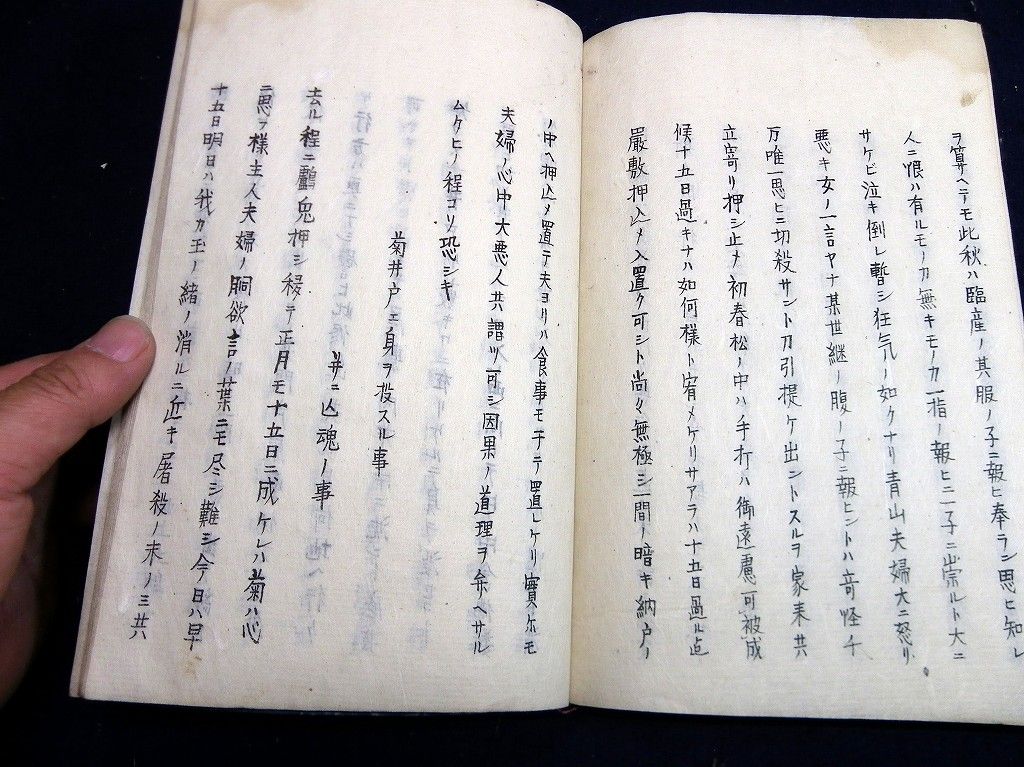 ヲ算サヘテモ此秋ハ臨産ノ其服ノ子ニ報ヒ奉ラン思ヒ知レ
人ニ恨ハ有ルモノカ無キモノカ一指ノ報ヒニ一子ニ出崇ルト大ニ
サケビ泣キ倒レ暫シ狂気ノ如クナリ青山夫婦大ニ怒リ
悪キ女ノ一言ヤナ某世継ノ腹ノ子ニ報ヒントハ奇怪千
万唯一思ヒニ切殺サント刀引提ケ出ントスルヲ家来共
立寄リ押シ止メ初春松ノ中ハ手打ハ御遠慮可被成
候十五日過キナハ如何様ト宥メケリサアラハ十五日過ル迠
嚴敷押込メ入置ク可シト尚々無極シ一間ノ暗キ納戸ノ
ノ中ヘ押込メ置テ夫ヨリハ食事モ干テ置レケリ實ケニモ
夫婦ノ心中大悪人共謂ツ可シ因果ノ道理ヲ弁ヘサル
ムクヒノ程コソ恐シキ
菊井戸エ身ヲ投スル事
并ニ亡魂ノ事
去ル程ニ烏兎押シ移テ正月モ十五日ニ成ケレハ菊ハ心
ニ思フ様主人夫婦ノ胴欲言ノ葉ニモ尽シ難シ今日ハ早
十五日明日ハ我カ玉ノ緒ノ消ルニ近キ屠殺ノ末ノ三共